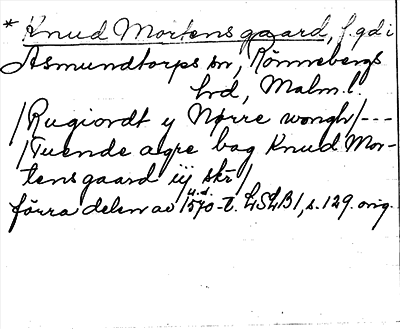 * Knud Mortensgaard, f. gd i
Asmundtorps sn, Rönnebergs
hrd, Malm. l.
/Rugiordt y Nørre wongh/---
/Tuende agre bag Knud Mor-
tensgaard iij skr/
u.d.
förra delen av 1570-t. LSLB1, s. 129. orig.